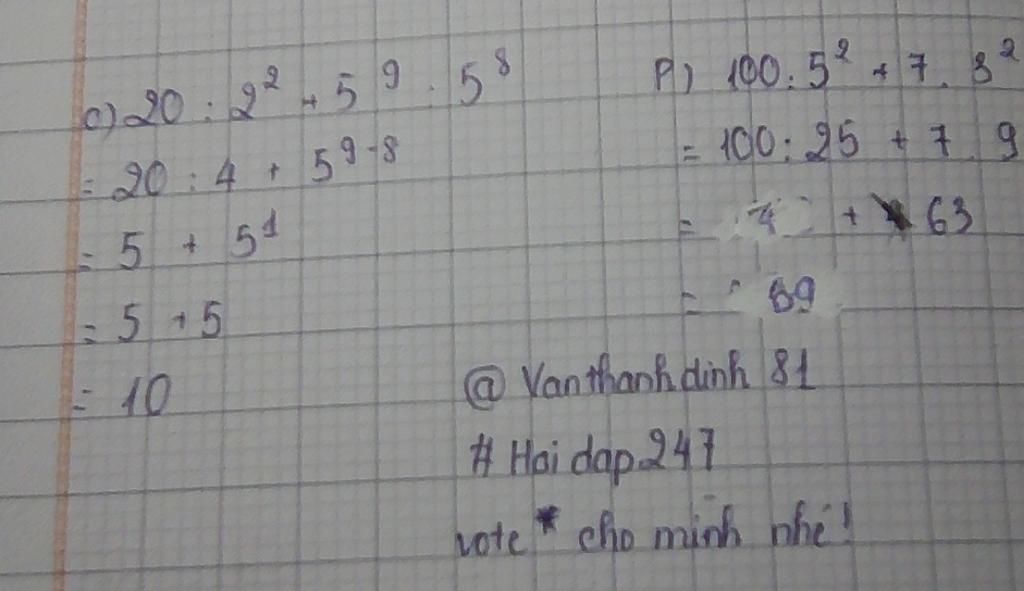 c) 20 : 2² + 5⁹ : 5⁸
= 20 : 4 + 5⁹⁻⁸
= 5 + 5¹
= 5 + 5
= 10
P) 100 : 5² + 7 . 3²
= 100 : 25 + 7 . 9
= 4 + 63
= 69
@ Vanthanhdinh 81
# Hoi dap247
vote * cho mình nhé!